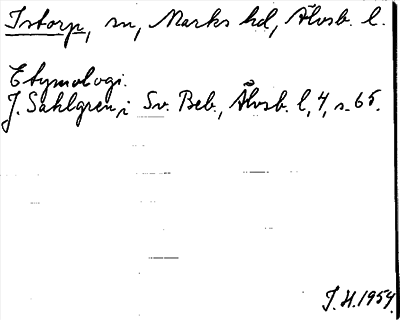 Istorp, sn, Marks hd, Älvsb. l.
Etymologi.
J. Sahlgren, i Sv. Beb., Älvsb. l, 4, s. 65.
J. H. 1954.